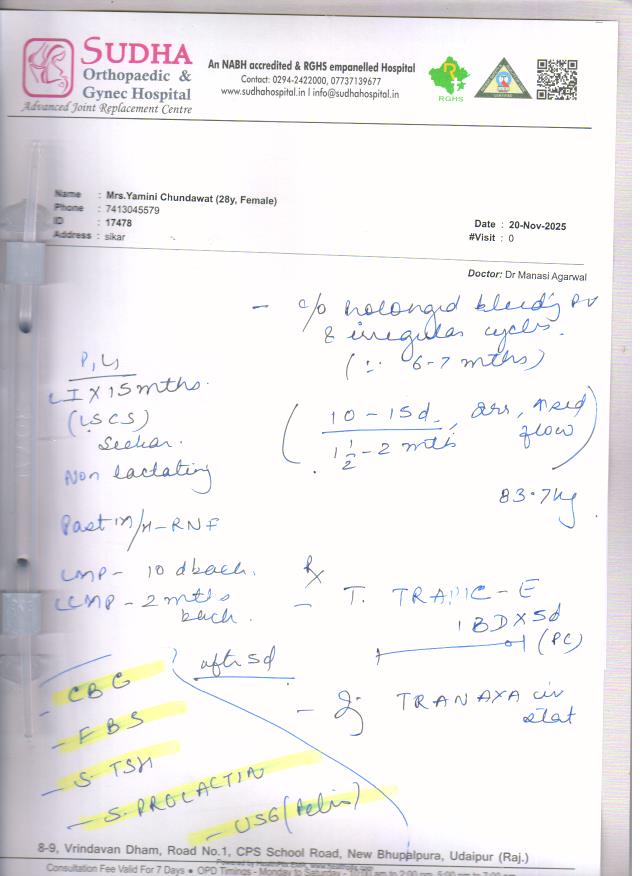 SUDHA
Orthopaedic &
Gynec Hospital
Advanced Joint Replacement Centre
An NABH accredited & RGHS empanelled Hospital
Contact: 0294-2422000, 07737139677
www.sudhahospital.in I info@sudhahospital.in
RGHS
Name : Mrs.Yamini Chundawat (28y, Female)
Phone : 7413045579
ID : 17478
Address : sikar
Date : 20-Nov-2025
#Visit : 0
Doctor: Dr Manasi Agarwal
- c/o prolonged bleeding PV
& irregular cycles.
( 6-7 mths)
P1L1
LI X 15 mths.
(LSCS)
Seekar.
Non lactating
10-15d,
1 1/2 - 2 mths
flow
83.7kg
Past m/H - RNF
LMP - 10 d back.
LLMP - 2 mths
back.
Rx
- T. TRAPIC-E
1 BD X 5d
(PC)
after 5d
- TRANAXA iv
stat
- CBC
- FBS
- S TSH
- S. PROLACTIN
- USG (Pelvis)
8-9, Vrindavan Dham, Road No.1, CPS School Road, New Bhupalpura, Udaipur (Raj.)
Consultation Fee Valid For 7 Days ● OPD Timings - Monday to Saturday -